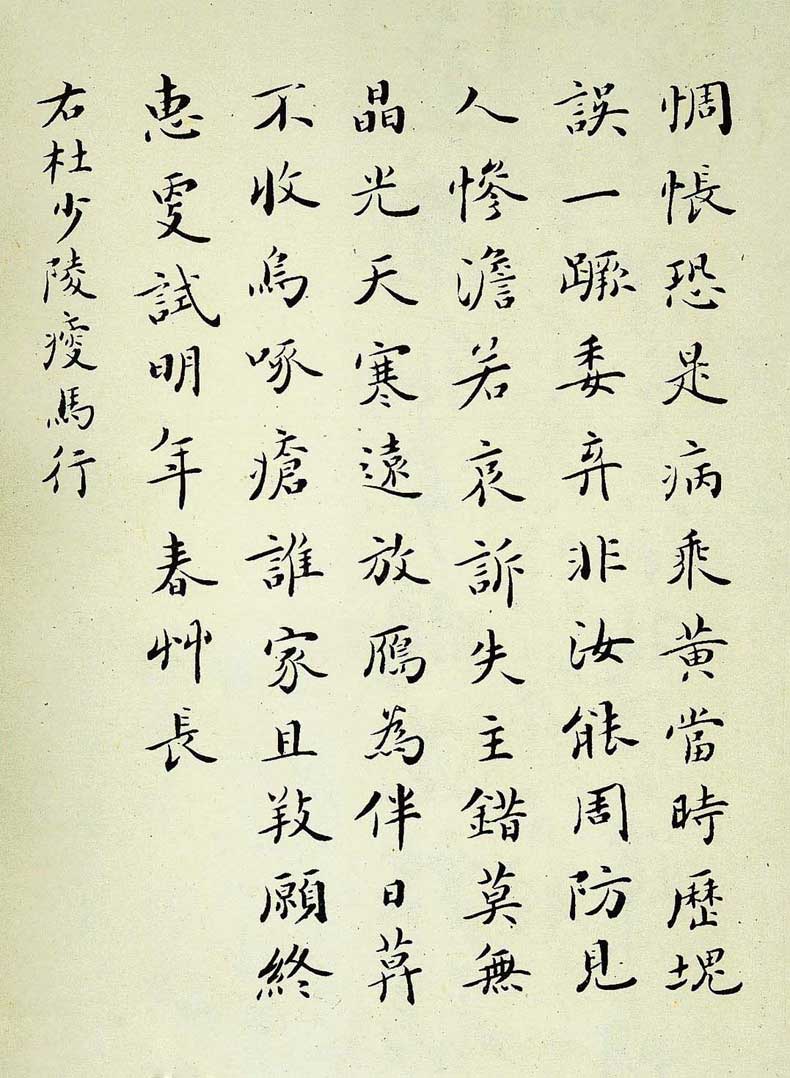 惆悵恐是病乘黃當時歷塊
誤一蹶委棄非汝能周防見
人慘澹若哀訴失主錯莫無
晶光天寒遠放鴈為伴日暮
不收烏啄瘡誰家且養願終
惠更試明年春艸長
右杜少陵瘦馬行